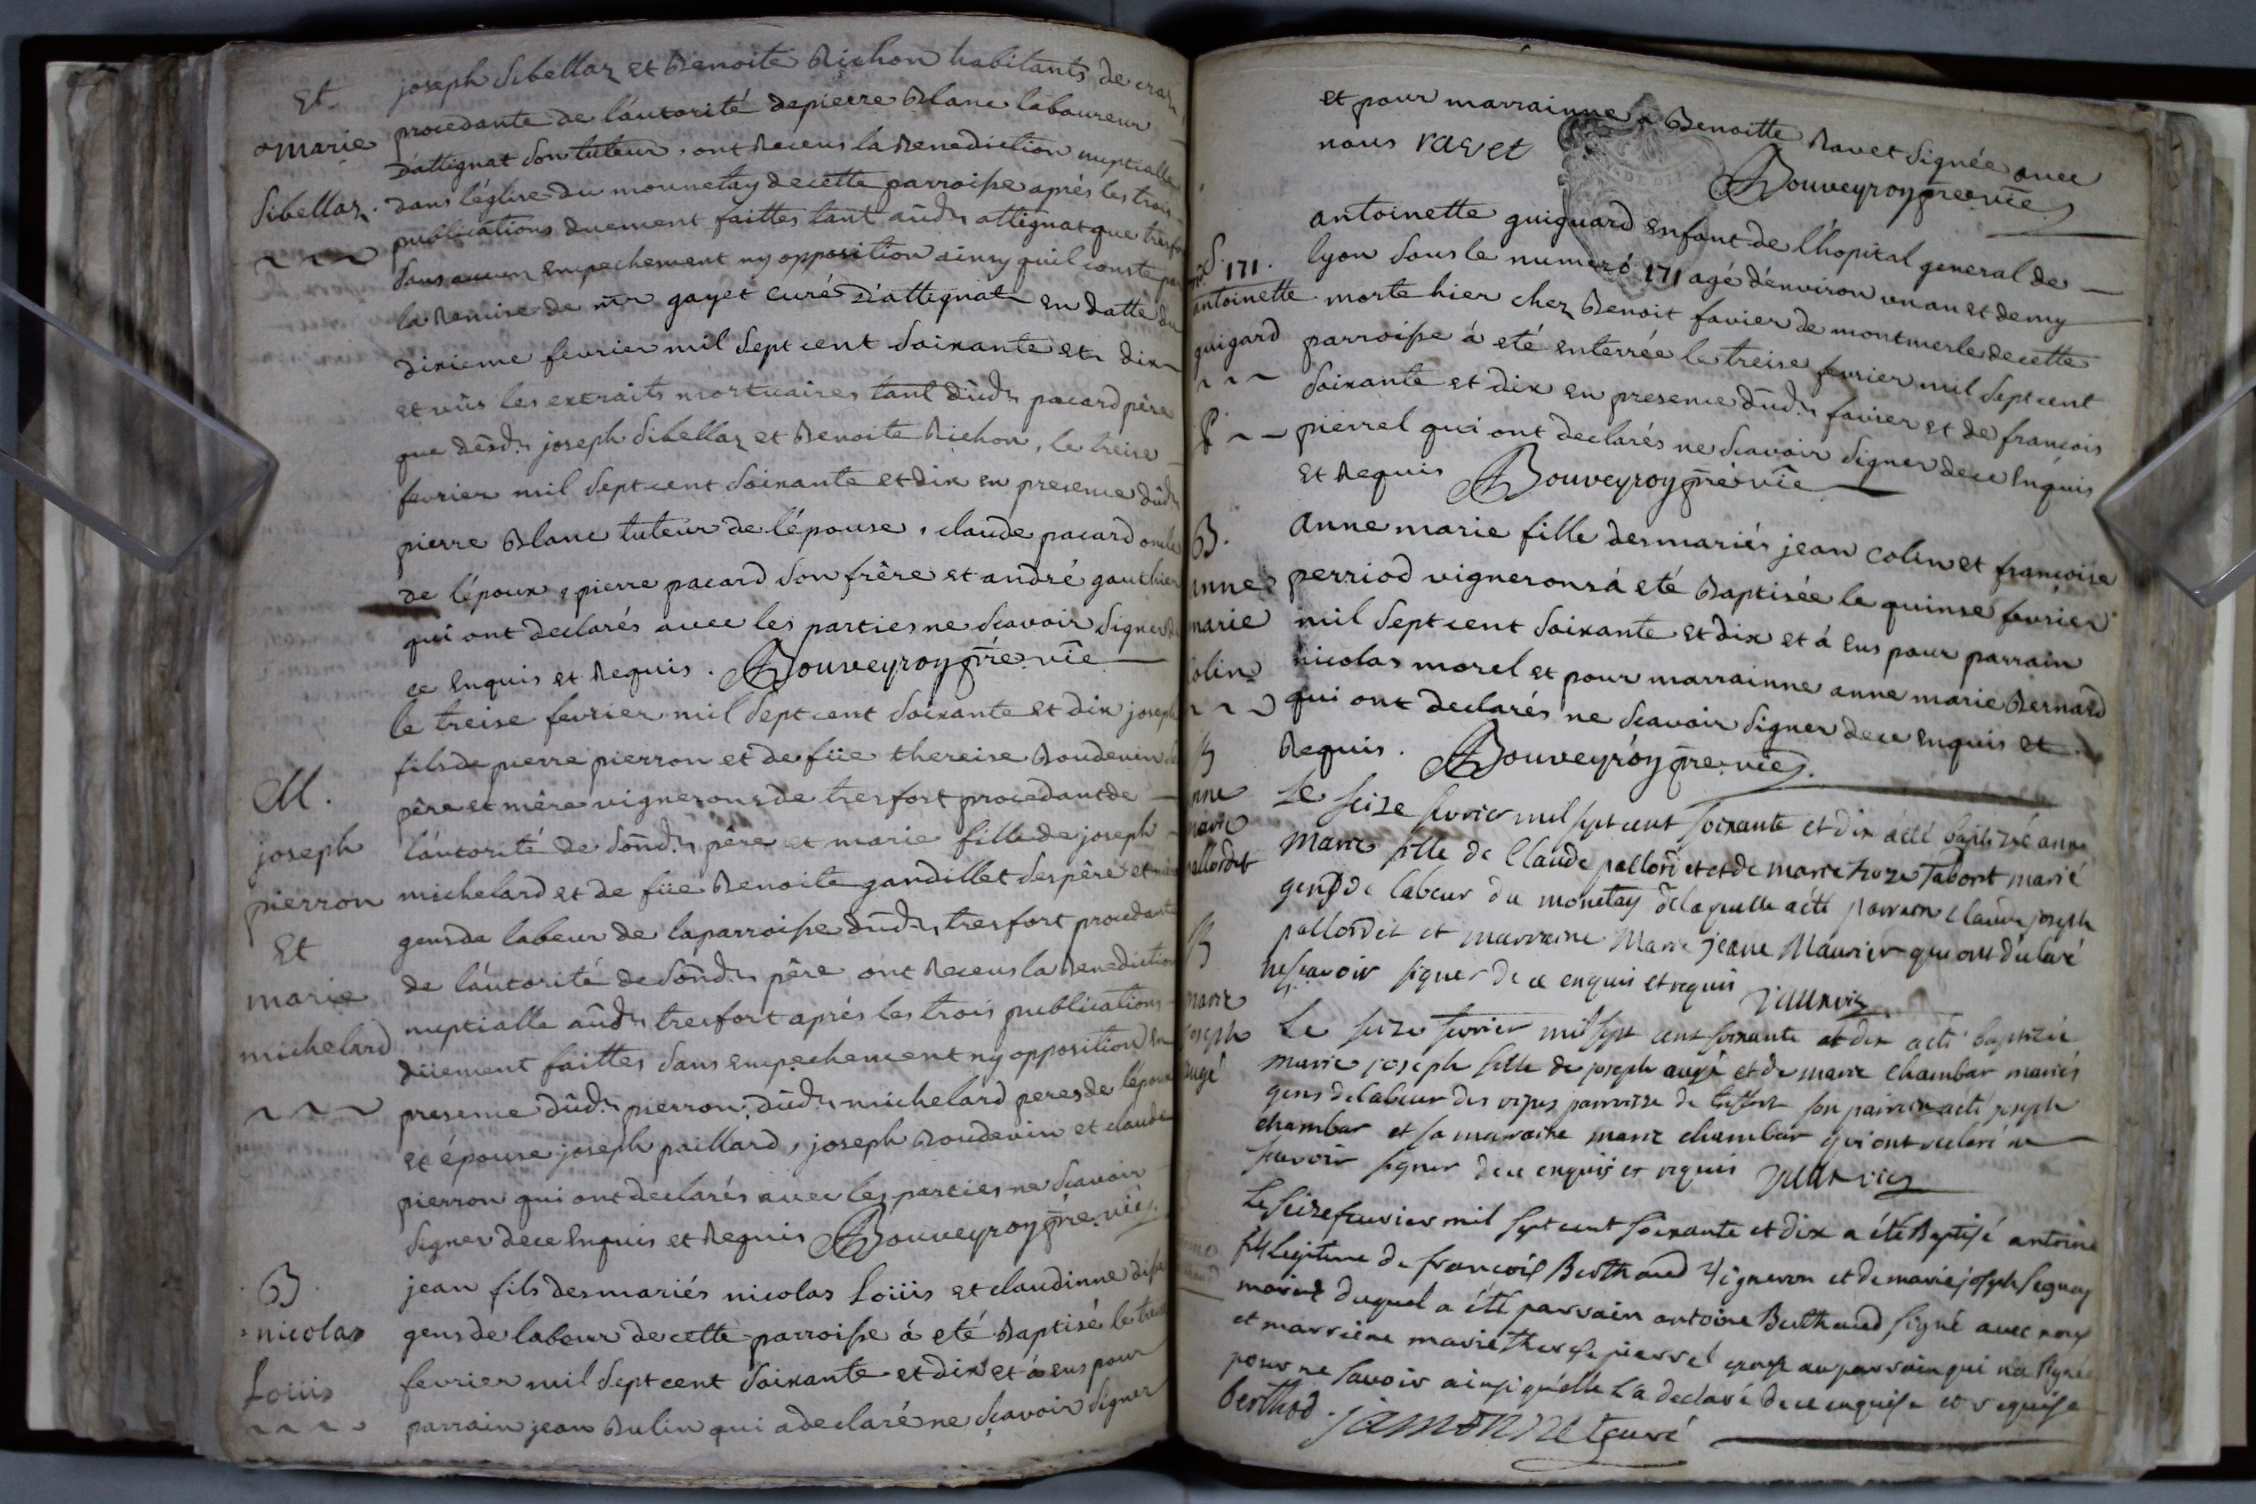 Et joseph Sibellaz et Benoite Bichon habitants de
marie procedante de lâutorité de pierre Blanc laboureur
D'attignat son tuteur, ont Receus la Benediction nuptialle
Sibellaz. dans l'église du mounetay de cette parroisse aprés les trois
publications duement faittes tant aûd. attignat que
sans aucun empechement ny opposition ainsy quil conste par
la Remise de mr gayet curé D'attignat en datte du
dixieme fevrier mil sept cent soixante et dix
et vûs les extraits mortuaires tant dûd. pacard père
que desd. joseph Sibellaz et Benoite Bichon, le treise
fevrier mil sept cent soixante et dix en presence dûd.
pierre Blanc tuteur de l'épouse, claude pacard oncle
de l'époux, pierre pacard son frère et andré gauthier
qui ont declarés avec les parties ne scavoir signer de
ce enquis et Requis. Bouveyroy prê. viê
le treise fevrier mil sept cent soixante et dix joseph
fils de pierre pierron et de füe thereise Boudevin
M. père et mère vignerons de tresfort procedant de
joseph l'âutorité de sond. père et marie fille de joseph
pierron michelard et de füe Benoite gandillet ses père et
Et gens de labeur de la parroisse dûd. tresfort procedante
marie de l'âutorité de sond. père ont Receus la Benediction
michelard nuptialle aûd. tresfort aprés les trois publications
düement faittes sans empechement ny opposition en
presence dûd. pierron, dûd. michelard peres de lépoux
et épouse joseph paillard, joseph Boudevin et claude
pierron qui ont declarés avec les parties ne scavoir
signer de ce enquis et Requis Bouveyroy prê. viê.
B. jean fils des mariés nicolas Loüis et claudinne
nicolas gens de labeur de cette parroisse á eté Baptisé le
Loüis fevrier mil sept cent soixante et dix et á eus pour
parrain jean Bulin qui a declaré ne scavoir signer
et pour marrainne Benoitte Ravet signée avec
nous ravet Bouveyroy prê viê
antoinette guiguard enfant de l'hopital general de
S. 171. lyon sous le numeró 171 agé d'environ un an et demy
antoinette morte hier chez Benoit favier de montmerle de cette
guigard parroisse á eté enterrée le treise fevrier mil sept cent
soixante et dix en presence dûd. favier et de francois
pierrel qui ont declarés ne scavoir signer de ce enquis
et Requis Bouveyroy prê viê
B. anne marie fille des mariés jean colin et francoise
anne perriod vignerons á eté Baptisée le quinse fevrier
marie mil sept cent soixante et dix et á eus pour parrain
colin nicolas morel et pour marrainne anne marie Bernard
qui ont declarés ne scavoir signer de ce enquis et
B Requis. Bouveyroy prê viê.
Le seize fevrier mil sept cent soixante et dix a eté baptizée anne
marie fille de Claude pallordet et de marie tabont marié
gens de labeur du monetay de laquelle a été parrain claude joseph
pallordet et marraine Marie jeane Maurier qui ont déclaré
B ne scavoir signer de ce enquis et requis
Le seize fevrier mil sept cent soixante et dix a eté baptizée
joseph marie joseph fille de joseph augé et de marie chambar mariés
augé gens de labeur parroisse de tresfort son parrain a eté joseph
chambar et sa marraine marie chambar qui ont declaré ne
scavoir signer de ce enquis et requis
Le seize feuvrier mil sept cent soixante et dix a été Baptisé antoine
fils legitime de francois Berthaud Vigneron et de marie joseph
mariés duquel a été parrain antoine Berthaud signé avec nous
et marreine marie therese pierrel qui na signé
pour ne savoir ainsi qu'elle l'a declaré de ce enquise et requise
berthod. jamonnet curé